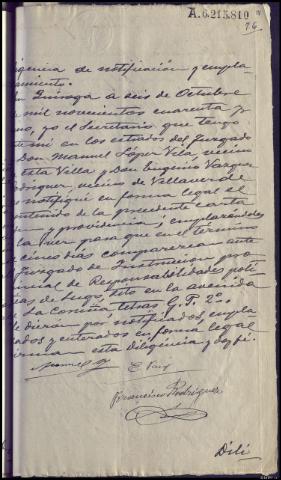 A.6.215.810
76
igencia de notificación y empla
amiento:
n Quiroga a seis de Octubre
e mil novecientos cuarenta y
no, yo el Secretario que tengo
en los estrados del Juzgado
Don Manuel López Vila, vecino
esta Villa y Don Eugenio Vazquez
Rodriguez, vecino de Villaverde
es notifiqué en forma legal el
ontenido de la precedente carta
n y providencia; emplazándoles
la Juez para que en el término
e cinco dias comparezcan ante
Juzgado de Instruccion pro
incial de Responsabilidades polí
cas de Lugo, sito en la avenida
e La Coruña letras G.T. 2º.
e dieron por notificados, empla
ados y enterados en forma legal
firman esta diligencia y doy fé.
Francisco Rodríguez
Dili